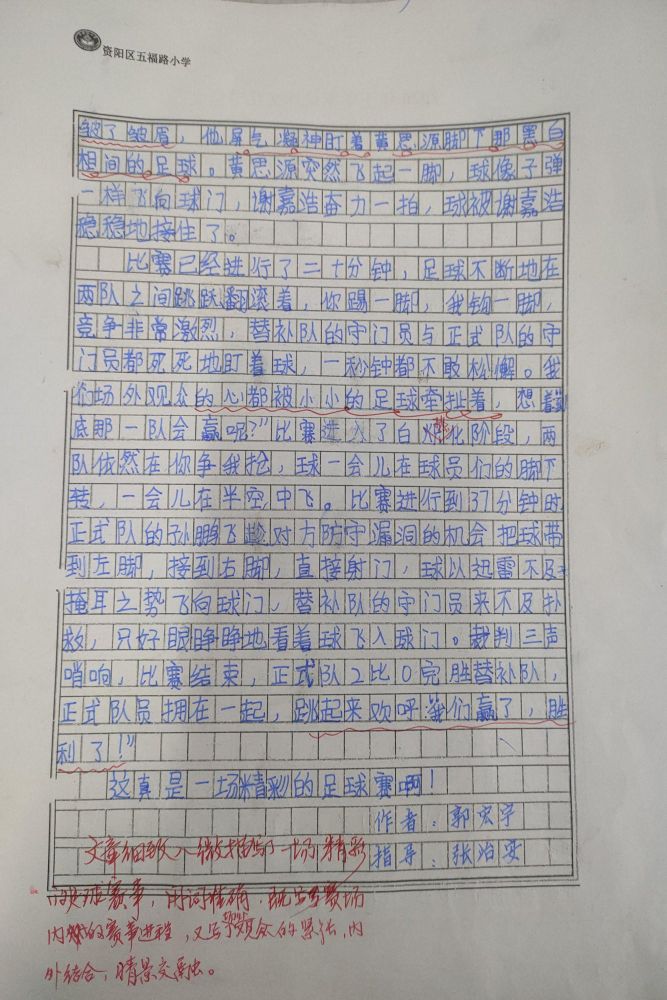 资阳区五福路小学
皱了皱眉，他屏气凝神盯着黄思源脚下那黑白
相间的足球。黄思源突然飞起一脚，球像子弹
一样飞向球门，谢嘉浩奋力一拍，球被谢嘉浩
稳稳地接住了。
比赛已经进行了二十分钟，足球不断地在
两队之间跳跃翻滚着，你踢一脚，我钩一脚，
竞争非常激烈，替补队的守门员与正式队的守
门员都死死地盯着球，一秒钟都不敢松懈。我
们场外观众的心都被小小的足球牵扯着，想着到
底那一队会赢呢？"比赛进入了白热化阶段，两
队依然在你争我抢，球一会儿在球员们的脚下
转，一会儿在半空中飞。比赛进行到37分钟时
正式队的孙鹏飞趁对方防守漏洞的机会把球带
到左脚，接到右脚，直接射门，球以迅雷不及
掩耳之势飞向球门，替补队的守门员来不及扑
救，只好眼睁睁地看着球飞入球门。裁判三声
哨响，比赛结束，正式队2比0完胜替补队，
正式队员拥在一起，跳起来欢呼"我们赢了，胜
利了！"
这真是一场精彩的足球赛啊！
作者：郭宏宇
文章细致入微描写了一场精彩
指导：张治安
的足球赛事，用词准确，既写赛场
内的赛事进程，又写观众的想法，内
外结合，情景交融。